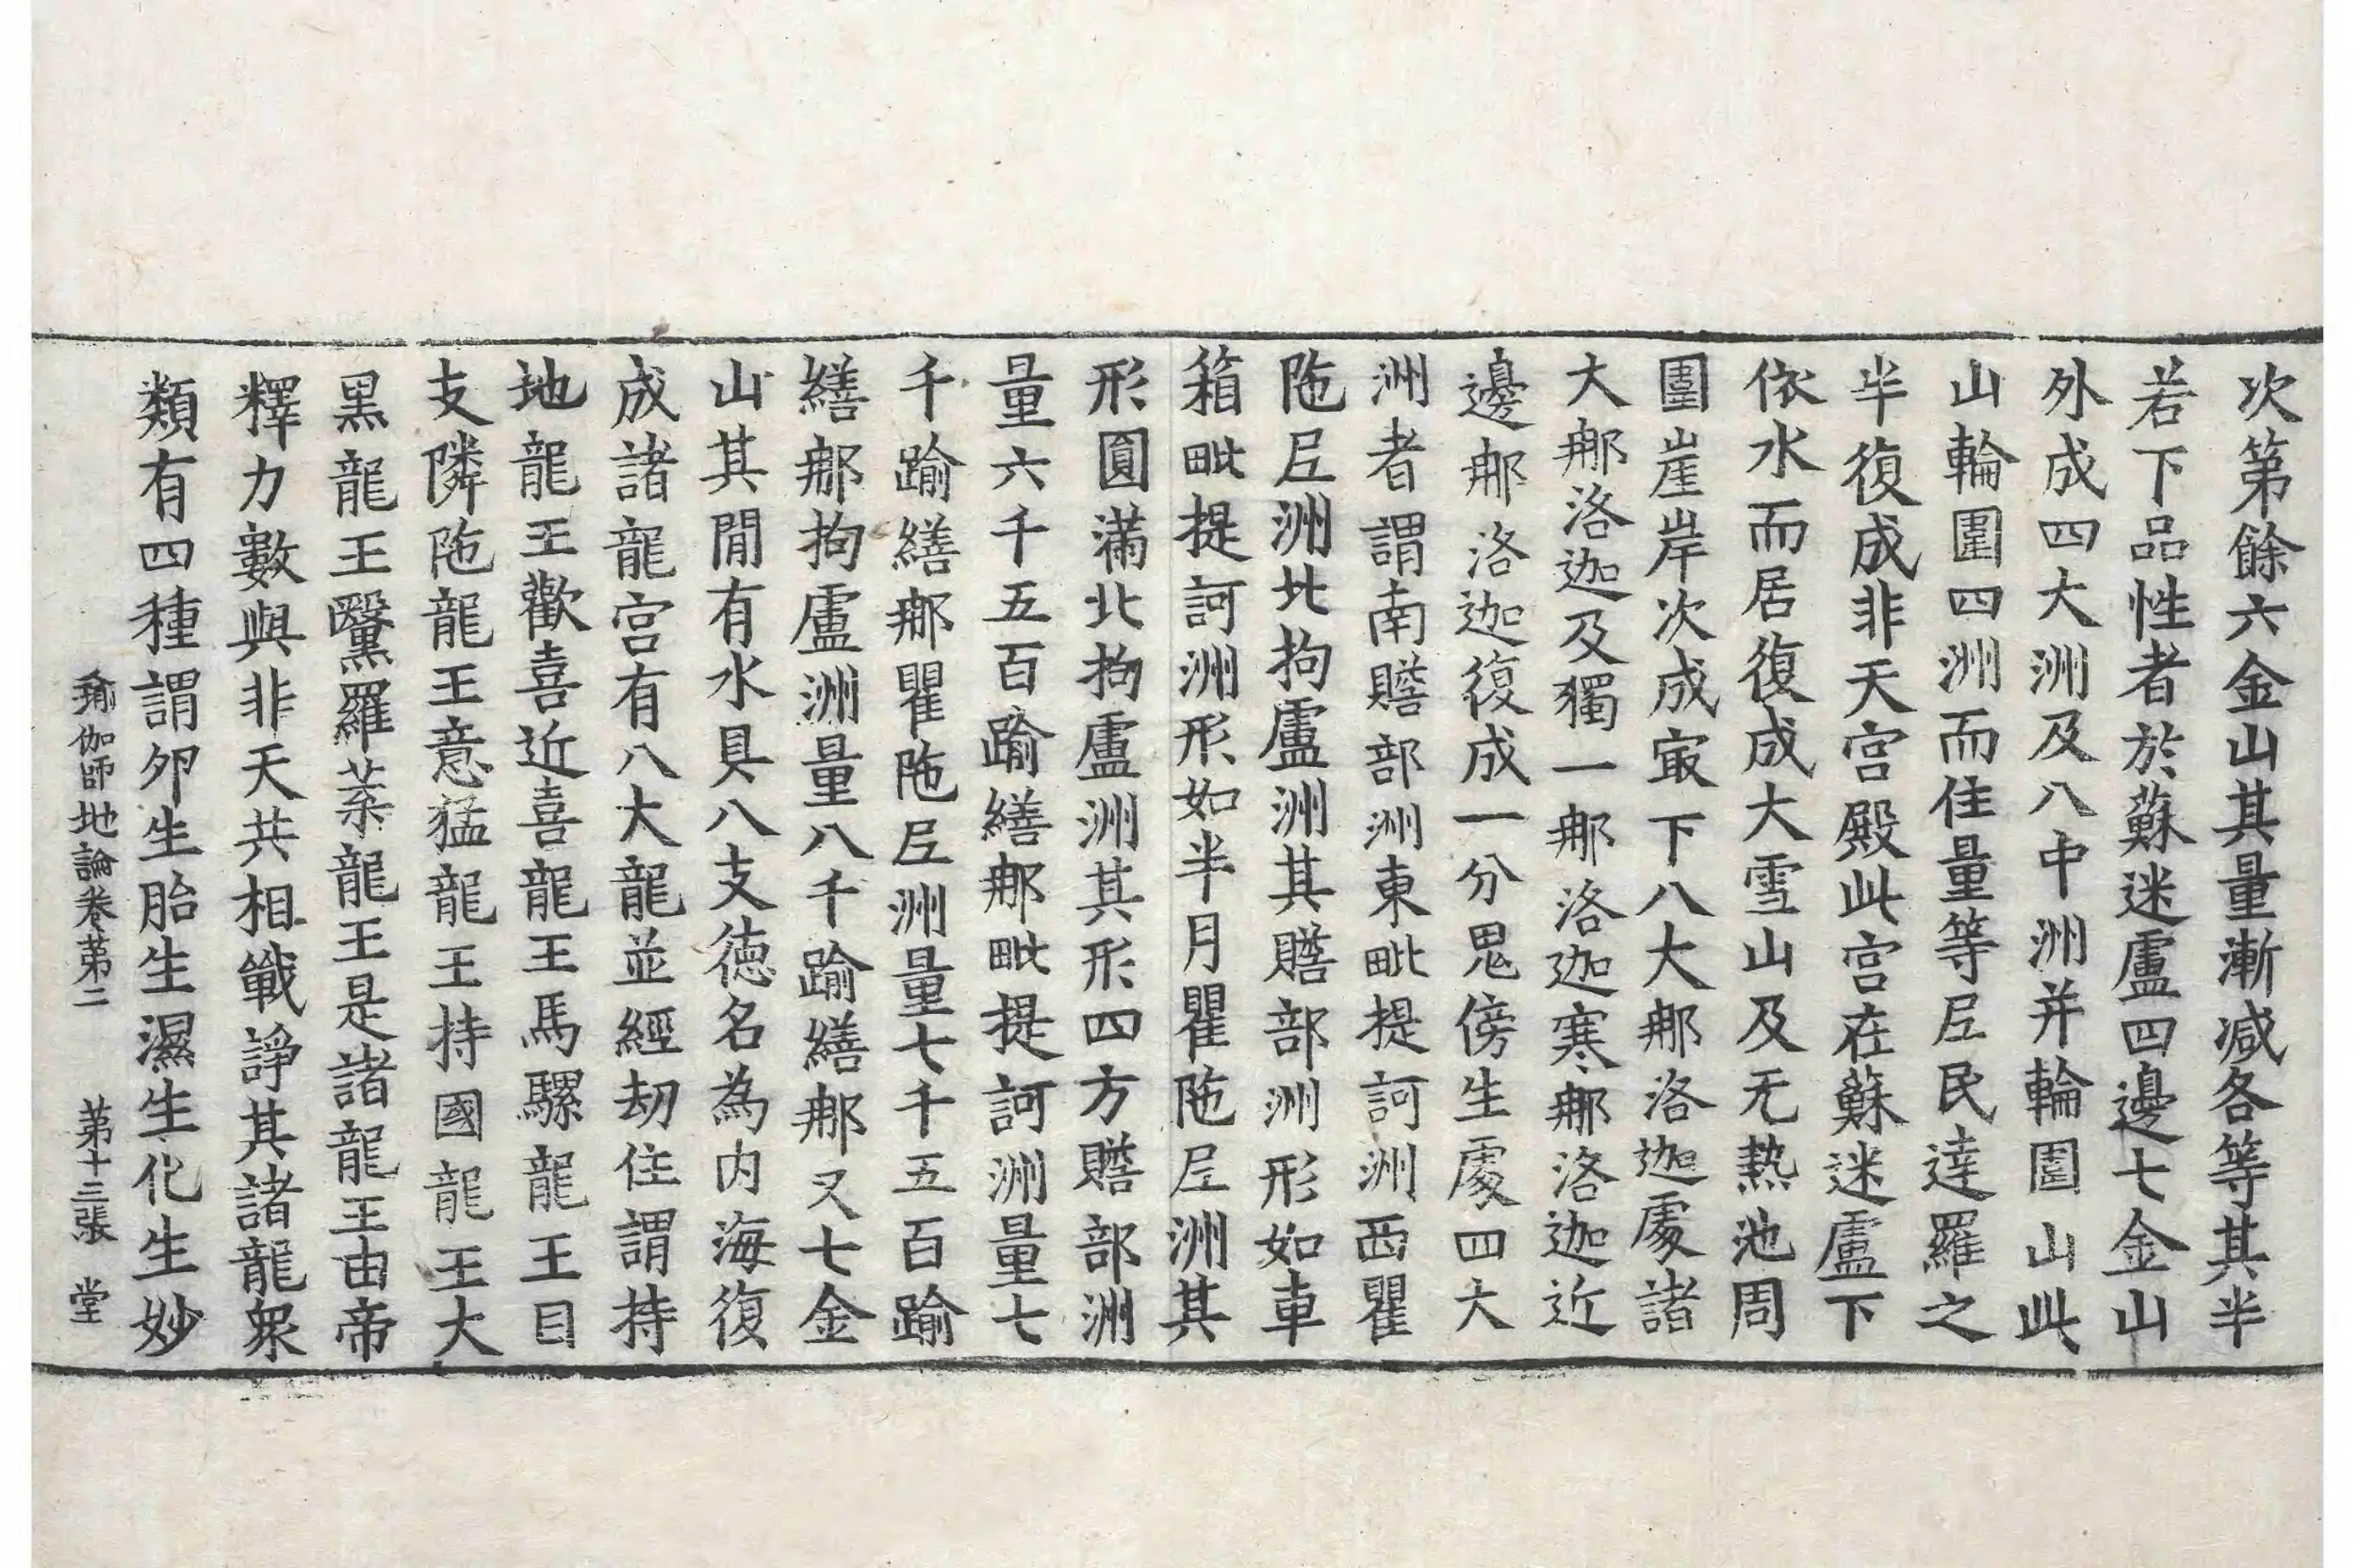 次第餘六金山其量漸減各等其半
若下品性者於蘇迷盧四邊七金山
外成四大洲及八中洲并輪圍山此
山輪圍四洲而住量等𡰱民達羅之
半復成非天宮殿此宮在蘇迷盧下
依水而居復成大雪山及无熱池周
圍崖岸次成㝡下八大那洛迦處諸
大那洛迦及獨一那洛迦寒那洛迦近
邊那洛迦復成一分鬼傍生處四大
洲者謂南贍部洲東毗提訶洲西瞿
陁𡰱洲北拘盧洲其贍部洲形如車
箱毗提訶洲形如半月瞿陁𡰱洲其
形圓滿北拘盧洲其形四方贍部洲
量六千五百踰繕那毗提訶洲量七
千踰繕那瞿陁𡰱洲量七千五百踰
繕那拘盧洲量八千踰繕那又七金
山其閒有水具八支德名為內海復
成諸龍宮有八大龍並經劫住謂持
地龍王歡喜近喜龍王馬騾龍王目
支隣陁龍王意猛龍王持國龍王大
黑龍王黳羅葉龍王是諸龍王由帝
釋力數與非天共相戰諍其諸龍衆
類有四種謂卵生胎生濕生化生妙
瑜伽師地論卷第二　第十三張　堂